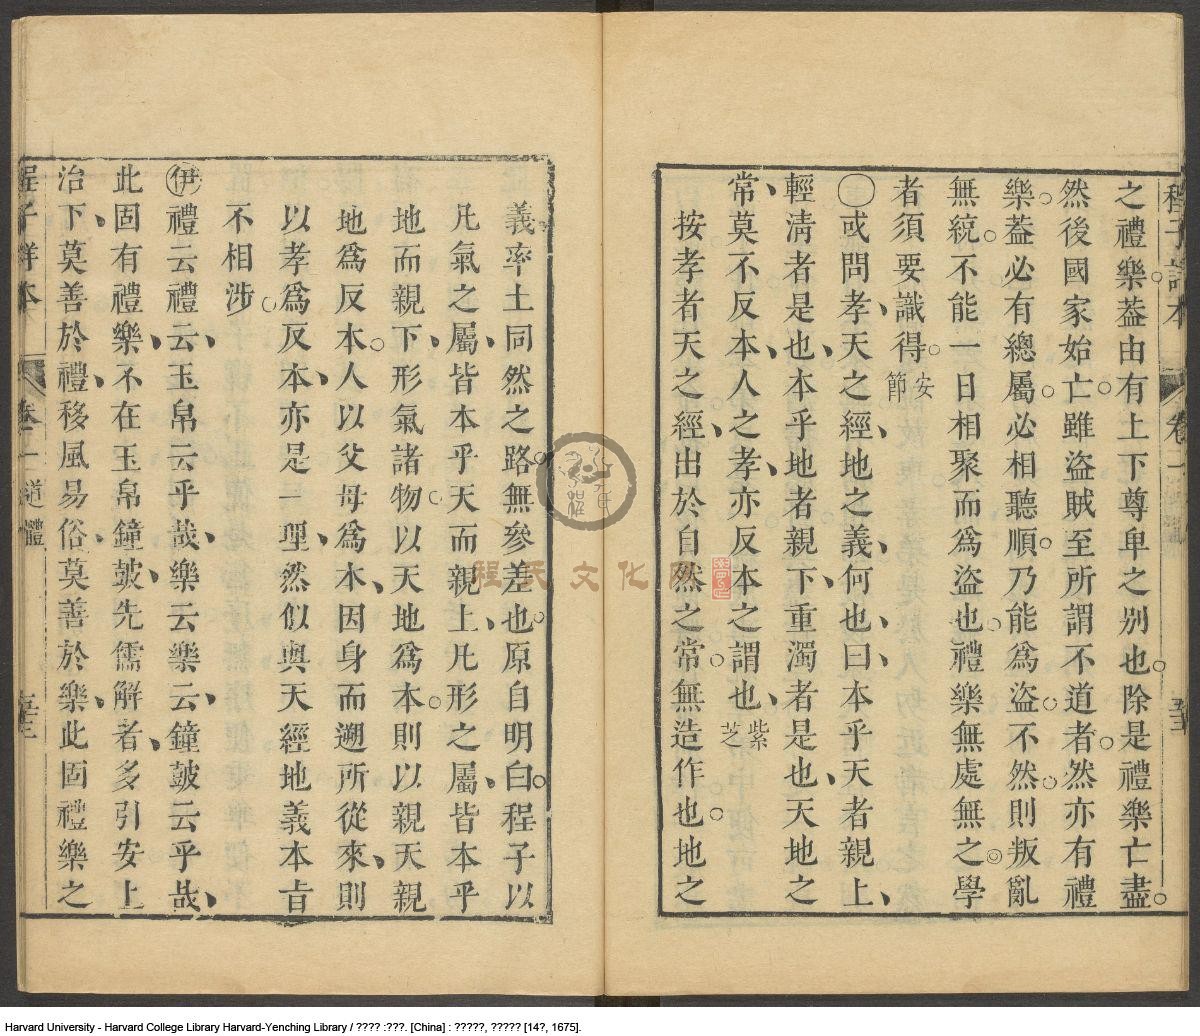 之禮樂葢由有上下尊卑之别也除是禮樂亡盡
然後國家始亡雖盜賊至所謂不道者然亦有禮
樂葢必有總屬必相聽順乃能為盜不然則叛亂
無統不能一日相聚而為盜也禮樂無處無之學
者須要識得安節
〇或問孝天之經地之義何也曰本乎天者親上
輕淸者是也本乎地者親下重濁者是也天地之
常莫不反本人之孝亦反本之謂也紫芝
按孝者天之經出於自然之常無造作也地之
義率土同然之路無參差也原自明白程子以
凡氣之屬皆本乎天而親上凡形之屬皆本乎
地而親下形氣諸物以天地爲本則以親天親
地爲反本人以父母爲本因身而遡所從來則
以孝爲反本亦是一理然似與天經地義本旨
不相涉
伊禮云禮云玉帛云乎哉樂云樂云鐘鼓云乎哉
此固有禮樂不在玉帛鐘鼓先儒解者多引安上
治下莫善於禮移風易俗莫善於樂此固禮樂之
程子詳本 卷一 道體
程氏文化网
Harvard University - Harvard College Library Harvard-Yenching Library / ???? :???. [China] : ?????, ????? [14?, 1675].